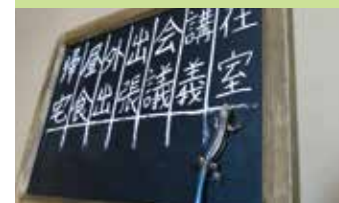 在室
講義
会議
出張
外出
昼食
帰宅